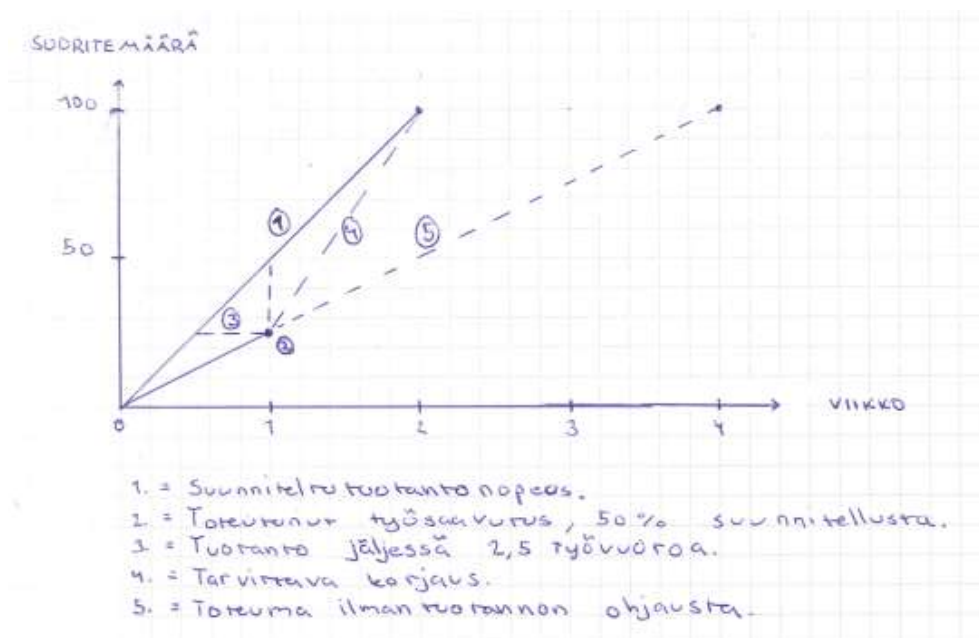 SUORITEMÄÄRÄ
100
50
1
4
5
3
2
0 1 2 3 4
VIIKKO
1. = Suunniteltu tuotantonopeus.
2 = Toteutunut työsaavutus, 50% suunnitellusta.
3 = Tuotanto jäljessä 2,5 työvuoroa.
4. = Tarvittava korjaus.
5. = Toteuma ilman tuotannon ohjausta.